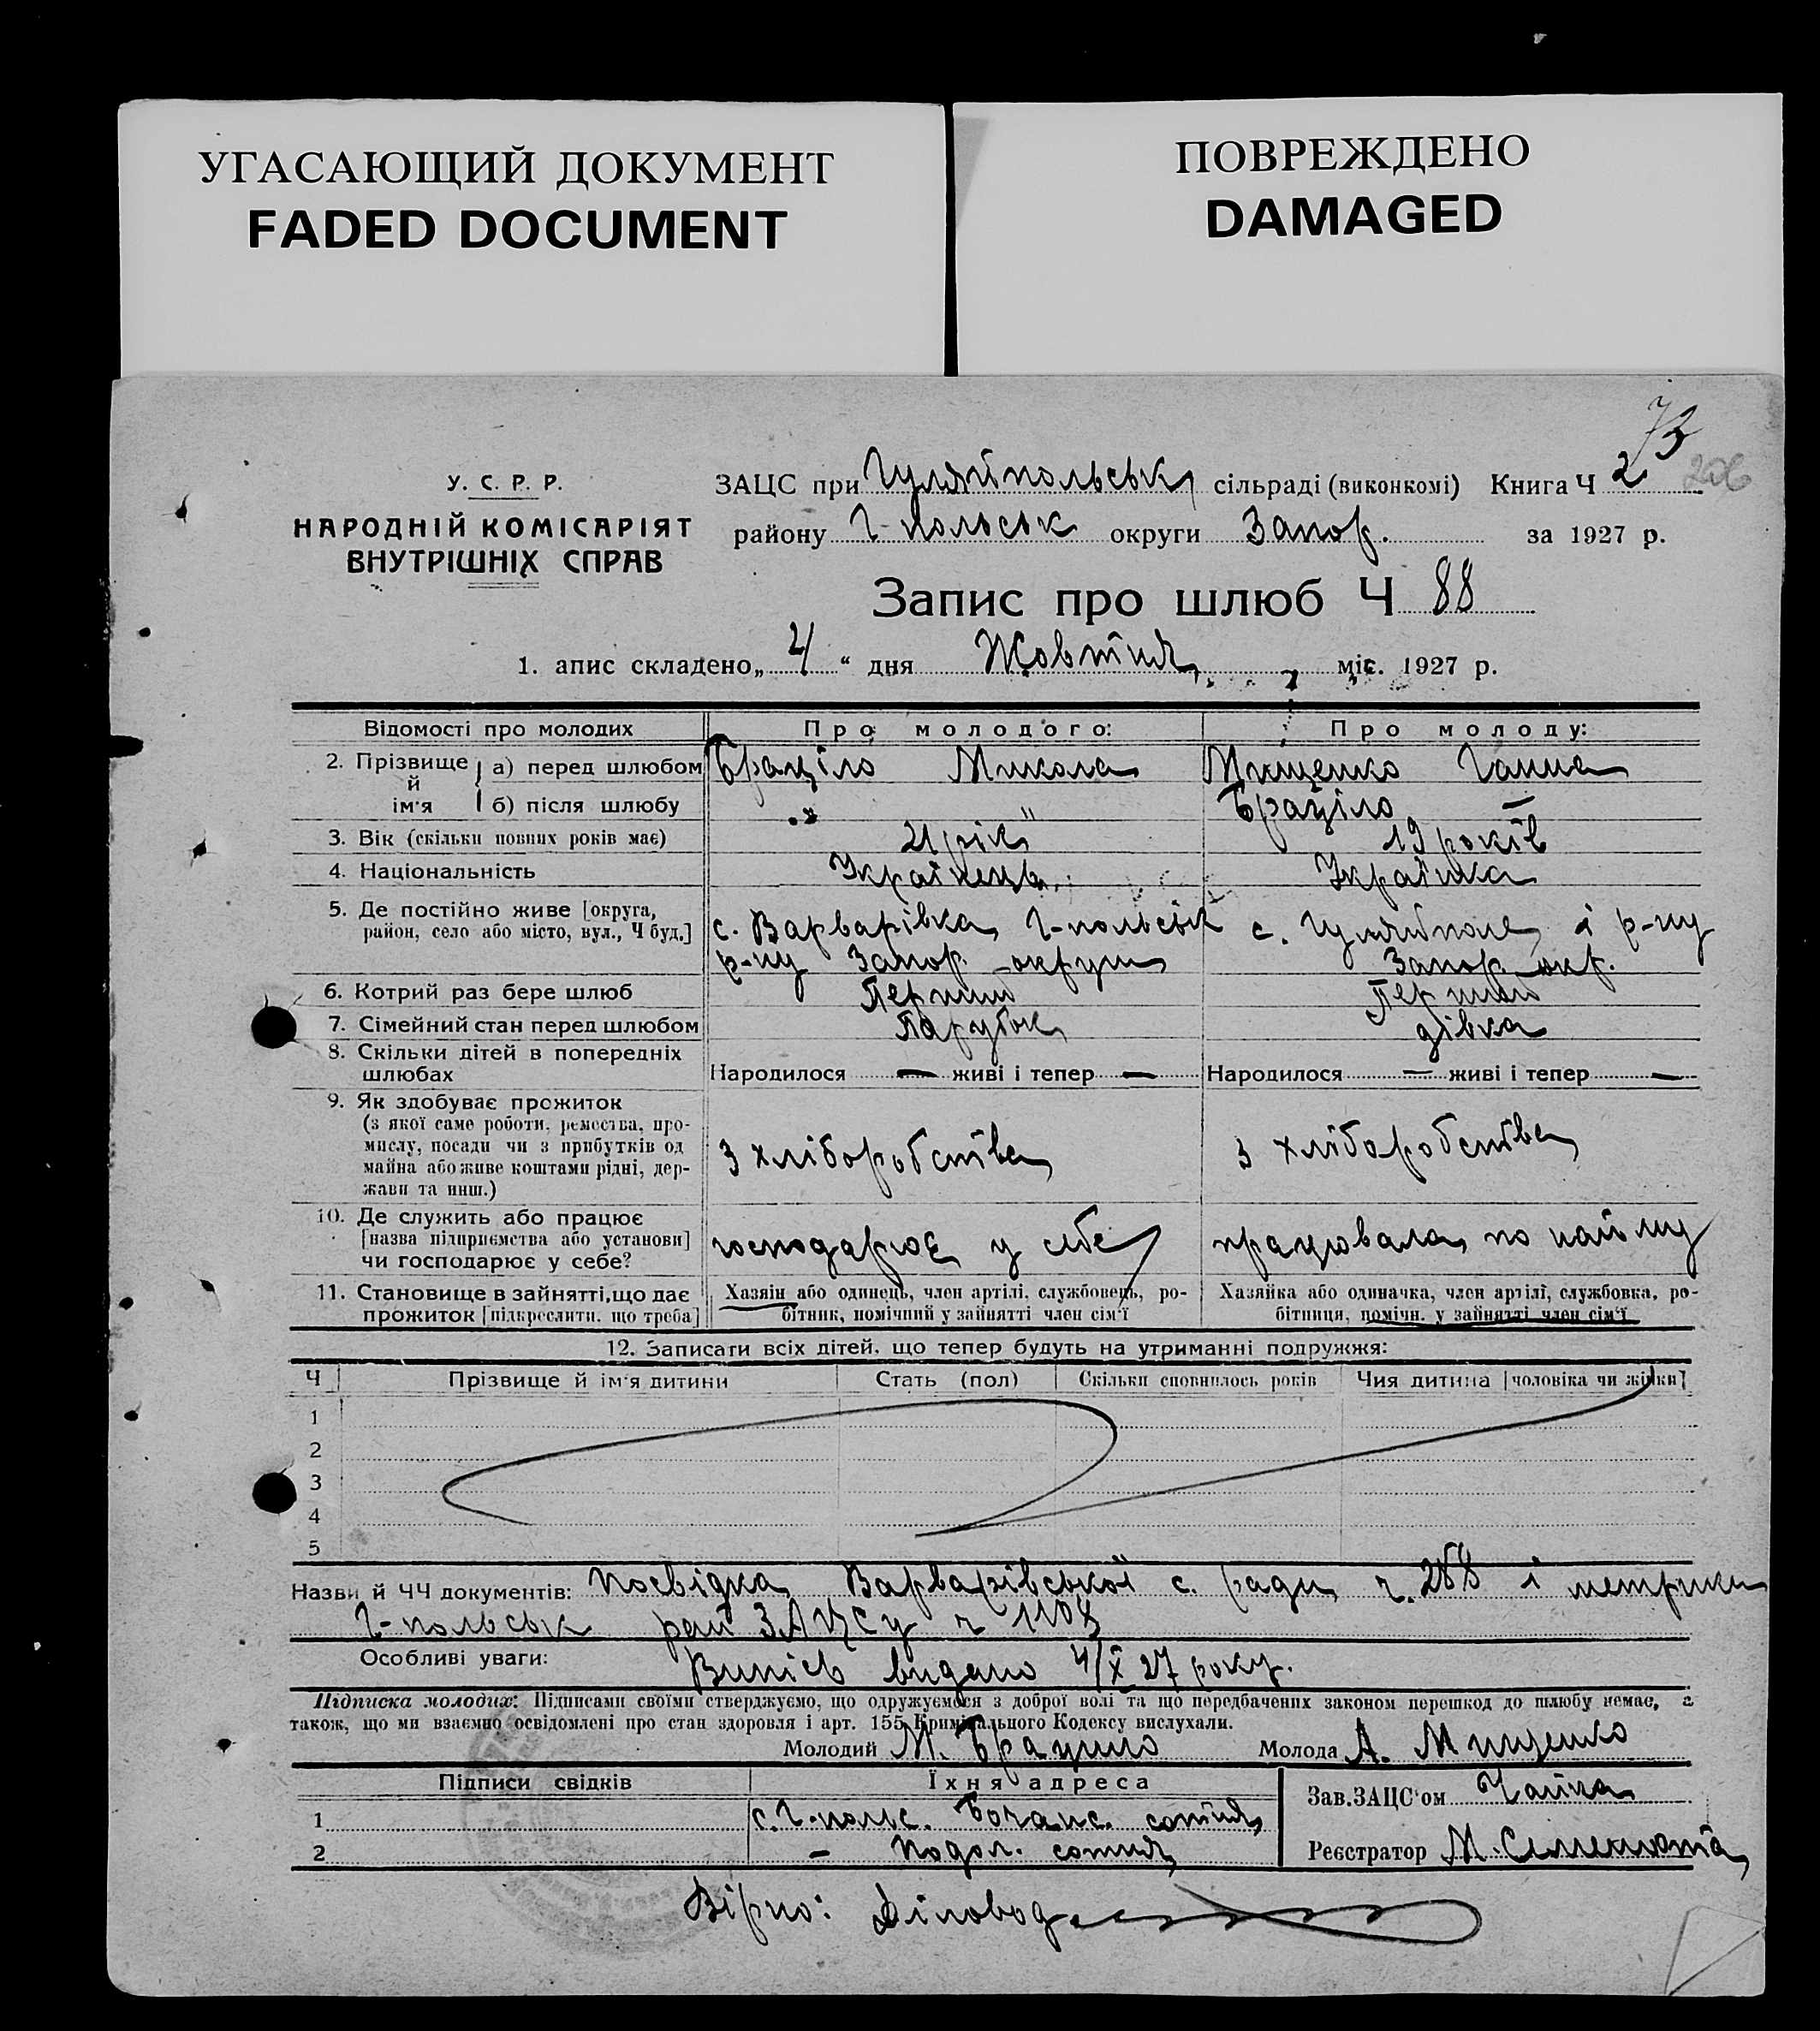 УГАСАЮЩИЙ ДОКУМЕНТ
FADED DOCUMENT
ПОВРЕЖДЕНО
DAMAGED
73
206
У. С. Р. Р.
НАРОДНІЙ КОМІСАРІЯТ
ВНУТРІШНІХ СПРАВ
ЗАЦС при Гуляйпольськ сільраді (виконкомі) Книга Ч 2
району Г-польськ округи Запор. за 1927 р.
Запис про шлюб Ч 88
1. апис складено „ 4 “ дня Жовтня міс. 1927 р.
Відомості про молодих Про молодого: Про молоду:
2. Прізвище й ім'я а) перед шлюбом Браціло Микола Мищенко Ганна
б) після шлюбу „ " Браціло —
3. Вік (скільки повних років має) 21 рік 19 років
4. Національність Українець Українка
5. Де постійно живе [округа, район, село або місто, вул., Ч буд.] с. Варварівка Г-польськ с. Гуляйполе і р-ну
р-ну Запор округи Запор окр.
6. Котрий раз бере шлюб Перший Перший
7. Сімейний стан перед шлюбом Парубок дівка
8. Скільки дітей в попередніх шлюбах Народилося — живі і тепер — Народилося — живі і тепер —
9. Як здобуває прожиток
(з якої саме роботи, ремества, про-
мислу, посади чи з прибутків од
майна або живе коштами рідні, дер-
жави та инш.)
З хліборобства З хліборобства
10. Де служить або працює
[назва підприємства або установи]
чи господарює у себе?
господарює у себе працювала по найму
11. Становище в зайнятті, що дає
прожиток [підкреслити, що треба]
Хазяїн або одинець, член артілі, службовець, ро-
бітник, помічний у зайнятті член сім'ї
Хазяйка або одиначка, член артілі, службовка, ро-
бітниця, помічн. у зайнятті член сім'ї
12. Записати всіх дітей, що тепер будуть на утриманні подружжя:
Ч Прізвище й ім'я дитини Стать (пол) Скільки сповнилось років Чия дитина [чоловіка чи жінки]
1
2
3
4
5
Назви й ЧЧ документів: Посвідка Варварівської с. ради ч. 288 і метрики
Г-польськ рай ЗАЦСу ч 1108
Особливі уваги: Випісь видано 4/X 27 року.
Підписка молодих: Підписами своїми стверджуємо, що одружуємося з доброї волі та що передбачених законом перешкод до шлюбу немає, а
також, що ми взаємно освідомлені про стан здоровля і арт. 155 Кримінального Кодексу вислухали.
Молодий М. Брацило Молода А. Мищенко
Підписи свідків Їхня адреса
1 с. Г-польс. Бочанс. сотня
2 — Подол. сотня
Зав. ЗАЦС'ом Чайка
Реєстратор М.
Вірно: Діловод